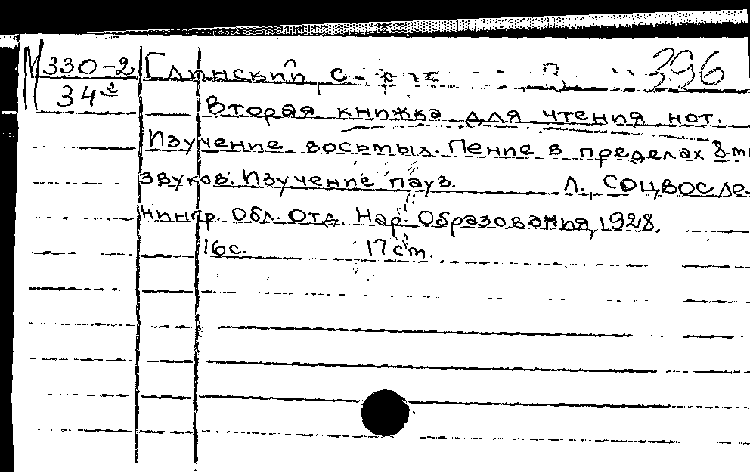 М 330-2 Глинский, С. 396
34
Вторая книжка для чтения нот.
Изучение восьмых. Пение в пределах 8-ми
звуков. Изучение пауз. Л., Соцвос Ле-
нингр. Обл. Отд. Нар. Образования, 1928.
16 с. 17 см.